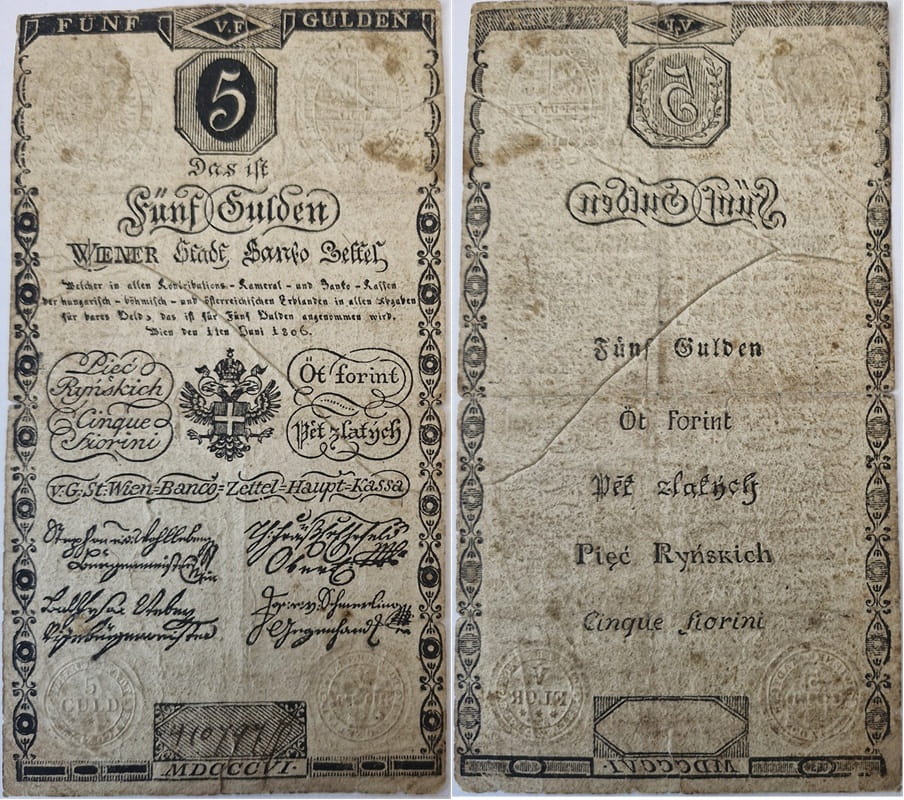 FÜNF V.F GULDEN
5
Das ist
Fünf Gulden
WIENER Stadt Banko Zettel
Welcher in allen Kontributions - Kameral - und Banko - Kassen
der hungarisch - böhmisch - und österreichischen Erblanden in allen Abgaben
für bares Geld, das ist für Fünf Gulden angenommen wird.
Wien den 1ten Juni 1806.
Pięć
Ryńskich
Öt forint
Cinque
fiorini
Pět zlatých
v. G: St: Wien=Banco=Zettel=Haupt=Kassa
Burgermeister
5
GULD
MDCCCVI.
V.V
5
Fünf Gulden
Fünf Gulden
Öt forint
Pět zlatých
Pięć Ryńskich
Cinque fiorini
V
FLOR
MDCCCVI.